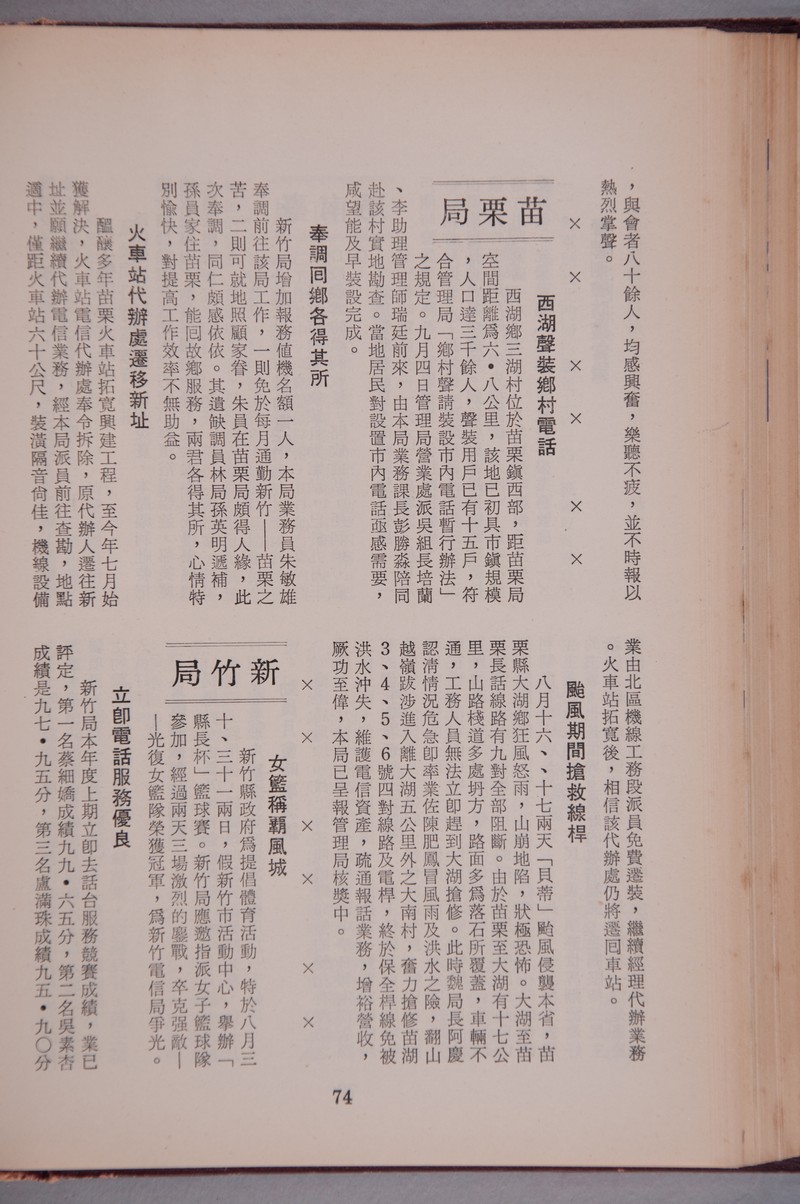 ，與會者八十餘人，均感興奮，樂聽不疲，並不時報以
熱烈掌聲。
×　×　×　×　×　×
苗栗局
西湖聲裝鄉村電話
西湖鄉三湖村位於苗栗鎭西部，距苗栗局
空間距離爲六•八公里，該地已初具市鎭規模
，人口達三千餘人，聲裝用戶已有十五戶，符
合管理局「鄉村聲請裝設市內電話暫行辦法」
之規定。九月四日管理局營業處派吳組長培蘭
、李助理管理師瑞廷前來，由本局業務課長彭勝淼陪同
赴該村實地勘查。當地居民對設置市內電話亟感需要，
咸望能及早裝設完成。
奉調回鄉各得其所
新竹局增加報務値機名額一人，本局業務員朱敏雄
奉調前往該局工作，一則免於每月通勤新竹——苗栗之
苦，二則可就地照顧家眷，朱員在苗栗局頗得人緣，此
次奉調，同仁頗感依依。其遺缺調員林局孫英明遞補，
孫員家住苗栗，能回故鄉服務，兩君各得其所，心情特
別愉快，對提高工作效率不無助益。
火車站代辦處遷移新址
醞釀多年苗栗火車站拓寬興建工程，至今年七月始
獲解決，火車站電信代辦處奉令拆除，原代辦人遷往新
址並願繼續代辦電信業務，經本局派員前往查勘，地點
適中，僅距火車站六十公尺，裝潢隔音尙佳，機線設備
業由北區機線工務段派員免費遷裝，繼續經理代辦業務
。火車站拓寬後，相信該代辦處仍將遷回車站。
颱風期間搶救線桿
八月十六、、十七兩天「貝蒂」颱風侵襲本省，苗
栗縣大湖鄉狂風怒雨，山崩地陷，狀極恐怖。大湖至苗
栗長話線路有九對全部阻斷。由於苗栗至大湖有十七公
里，山路棧道多處坍方，路面多爲落石所覆蓋，車輛不
通，工務人員無法立卽趕到大湖搶修。此時魏局長阿慶
認淸情況危急卽率業佐陳肥鳳冒風雨及洪水之險，翻山
越嶺跋涉進入離大湖五公里外之大南村，奮力搶修苗湖
3、4、5、6號四對線路及電桿，終於保全桿線免被
洪水沖失，維護電信資產，疏通報話業務，增裕營收，
厥功至偉，本局已呈報管理局核獎中。
×　×　×　×　×　×
新竹局
女籃稱霸風城
新竹縣政府爲提倡體育活動，特於八月三
十、三十一兩日，假新竹市活動中心，舉辦「
縣長杯」籃球賽。新竹局應邀指派女子籃球隊
參加，經過兩天三場激烈的鏖戰，卒克强敵—
—光復女籃隊榮獲冠軍，爲新竹電信局爭光。
立卽電話服務優良
新竹局本年度上期立卽去話台服務競賽成績，業已
評定，第一名蔡細嬌成績九九•六五分，第二名吳素杏
成績是九七•九五分，第三名盧滿珠成績九五•九〇分
74